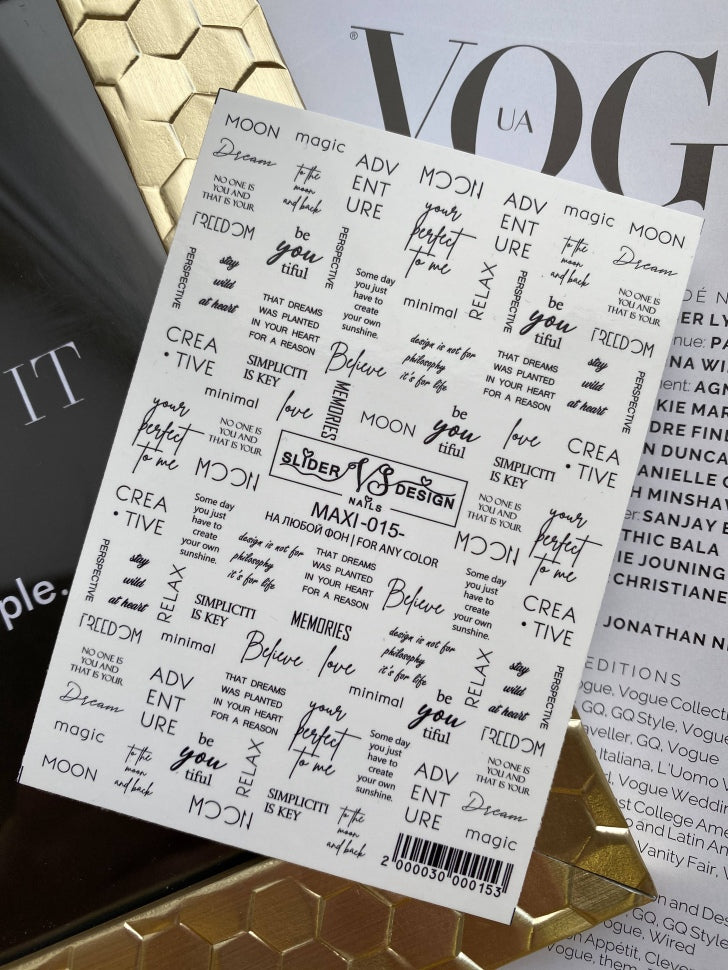 VOG
UA
IT
ple.
MOON
magic
Dream
to the
moon
and back
ADV
ENT
URE
MOON
NO ONE IS
YOU AND
THAT IS YOUR
FREEDOM
be
you
tiful
PERSPECTIVE
your
perfect
to me
ADV
ENT
URE
magic
MOON
to the
moon
and back
Dream
stay
wild
at heart
PERSPECTIVE
Some day
you just
have to
create
your own
sunshine.
minimal
RELAX
PERSPECTIVE
be
you
tiful
NO ONE IS
YOU AND
THAT IS YOUR
FREEDOM
THAT DREAMS
WAS PLANTED
IN YOUR HEART
FOR A REASON
CREA
• TIVE
SIMPLICITI
IS KEY
Believe
design is not for
philosophy
it's for life
THAT DREAMS
WAS PLANTED
IN YOUR HEART
FOR A REASON
stay
wild
at heart
PERSPECTIVE
minimal
love
MEMORIES
MOON
be
you
tiful
love
CREA
• TIVE
your
perfect
to me
NO ONE IS
YOU AND
THAT IS YOUR
MOON
SLIDER VS DESIGN
NAILS
MAXI -015-
НА ЛЮБОЙ ФОН | FOR ANY COLOR
SIMPLICITI
IS KEY
NO ONE IS
YOU AND
THAT IS YOUR
your
perfect
to me
CREA
• TIVE
Some day
you just
have to
create
your own
sunshine.
design is not for
philosophy
it's for life
THAT DREAMS
WAS PLANTED
IN YOUR HEART
FOR A REASON
MOON
Believe
Some day
you just
have to
create
your own
sunshine.
CREA
• TIVE
PERSPECTIVE
stay
wild
at heart
RELAX
SIMPLICITI
IS KEY
MEMORIES
design is not for
philosophy
it's for life
RELAX
stay
wild
at heart
PERSPECTIVE
FREEDOM
minimal
Believe
love
minimal
be
you
tiful
FREEDOM
NO ONE IS
YOU AND
THAT IS YOUR
ADV
ENT
URE
THAT DREAMS
WAS PLANTED
IN YOUR HEART
FOR A REASON
your
perfect
to me
Some day
you just
have to
create
your own
sunshine.
NO ONE IS
YOU AND
THAT IS YOUR
Dream
magic
be
you
tiful
RELAX
ADV
ENT
URE
Dream
MOON
to the
moon
and back
MOON
SIMPLICITI
IS KEY
to the
moon
and back
magic
2 000030 000153
DÉ N
ER LY
nue: PA
NA WI
ment: AGN
KIE MAR
DRE FIN
N DUNCA
ANIELLE C
H MINSHAV
er: SANJAY B
THIC BALA
IE JOUNING
CHRISTIANE
JONATHAN N
EDITIONS
ogue, Vogue Collecti
GQ, GQ Style, Vogue
aveller, GQ, Vogue
Italiana, L'Uomo
d, Vogue Wedding
st College Ame
o and Latin Am
Vanity Fair, V
on and Des
GQ, GQ Style
ogue, Wired
on Appétit, Clever
Vogue, them